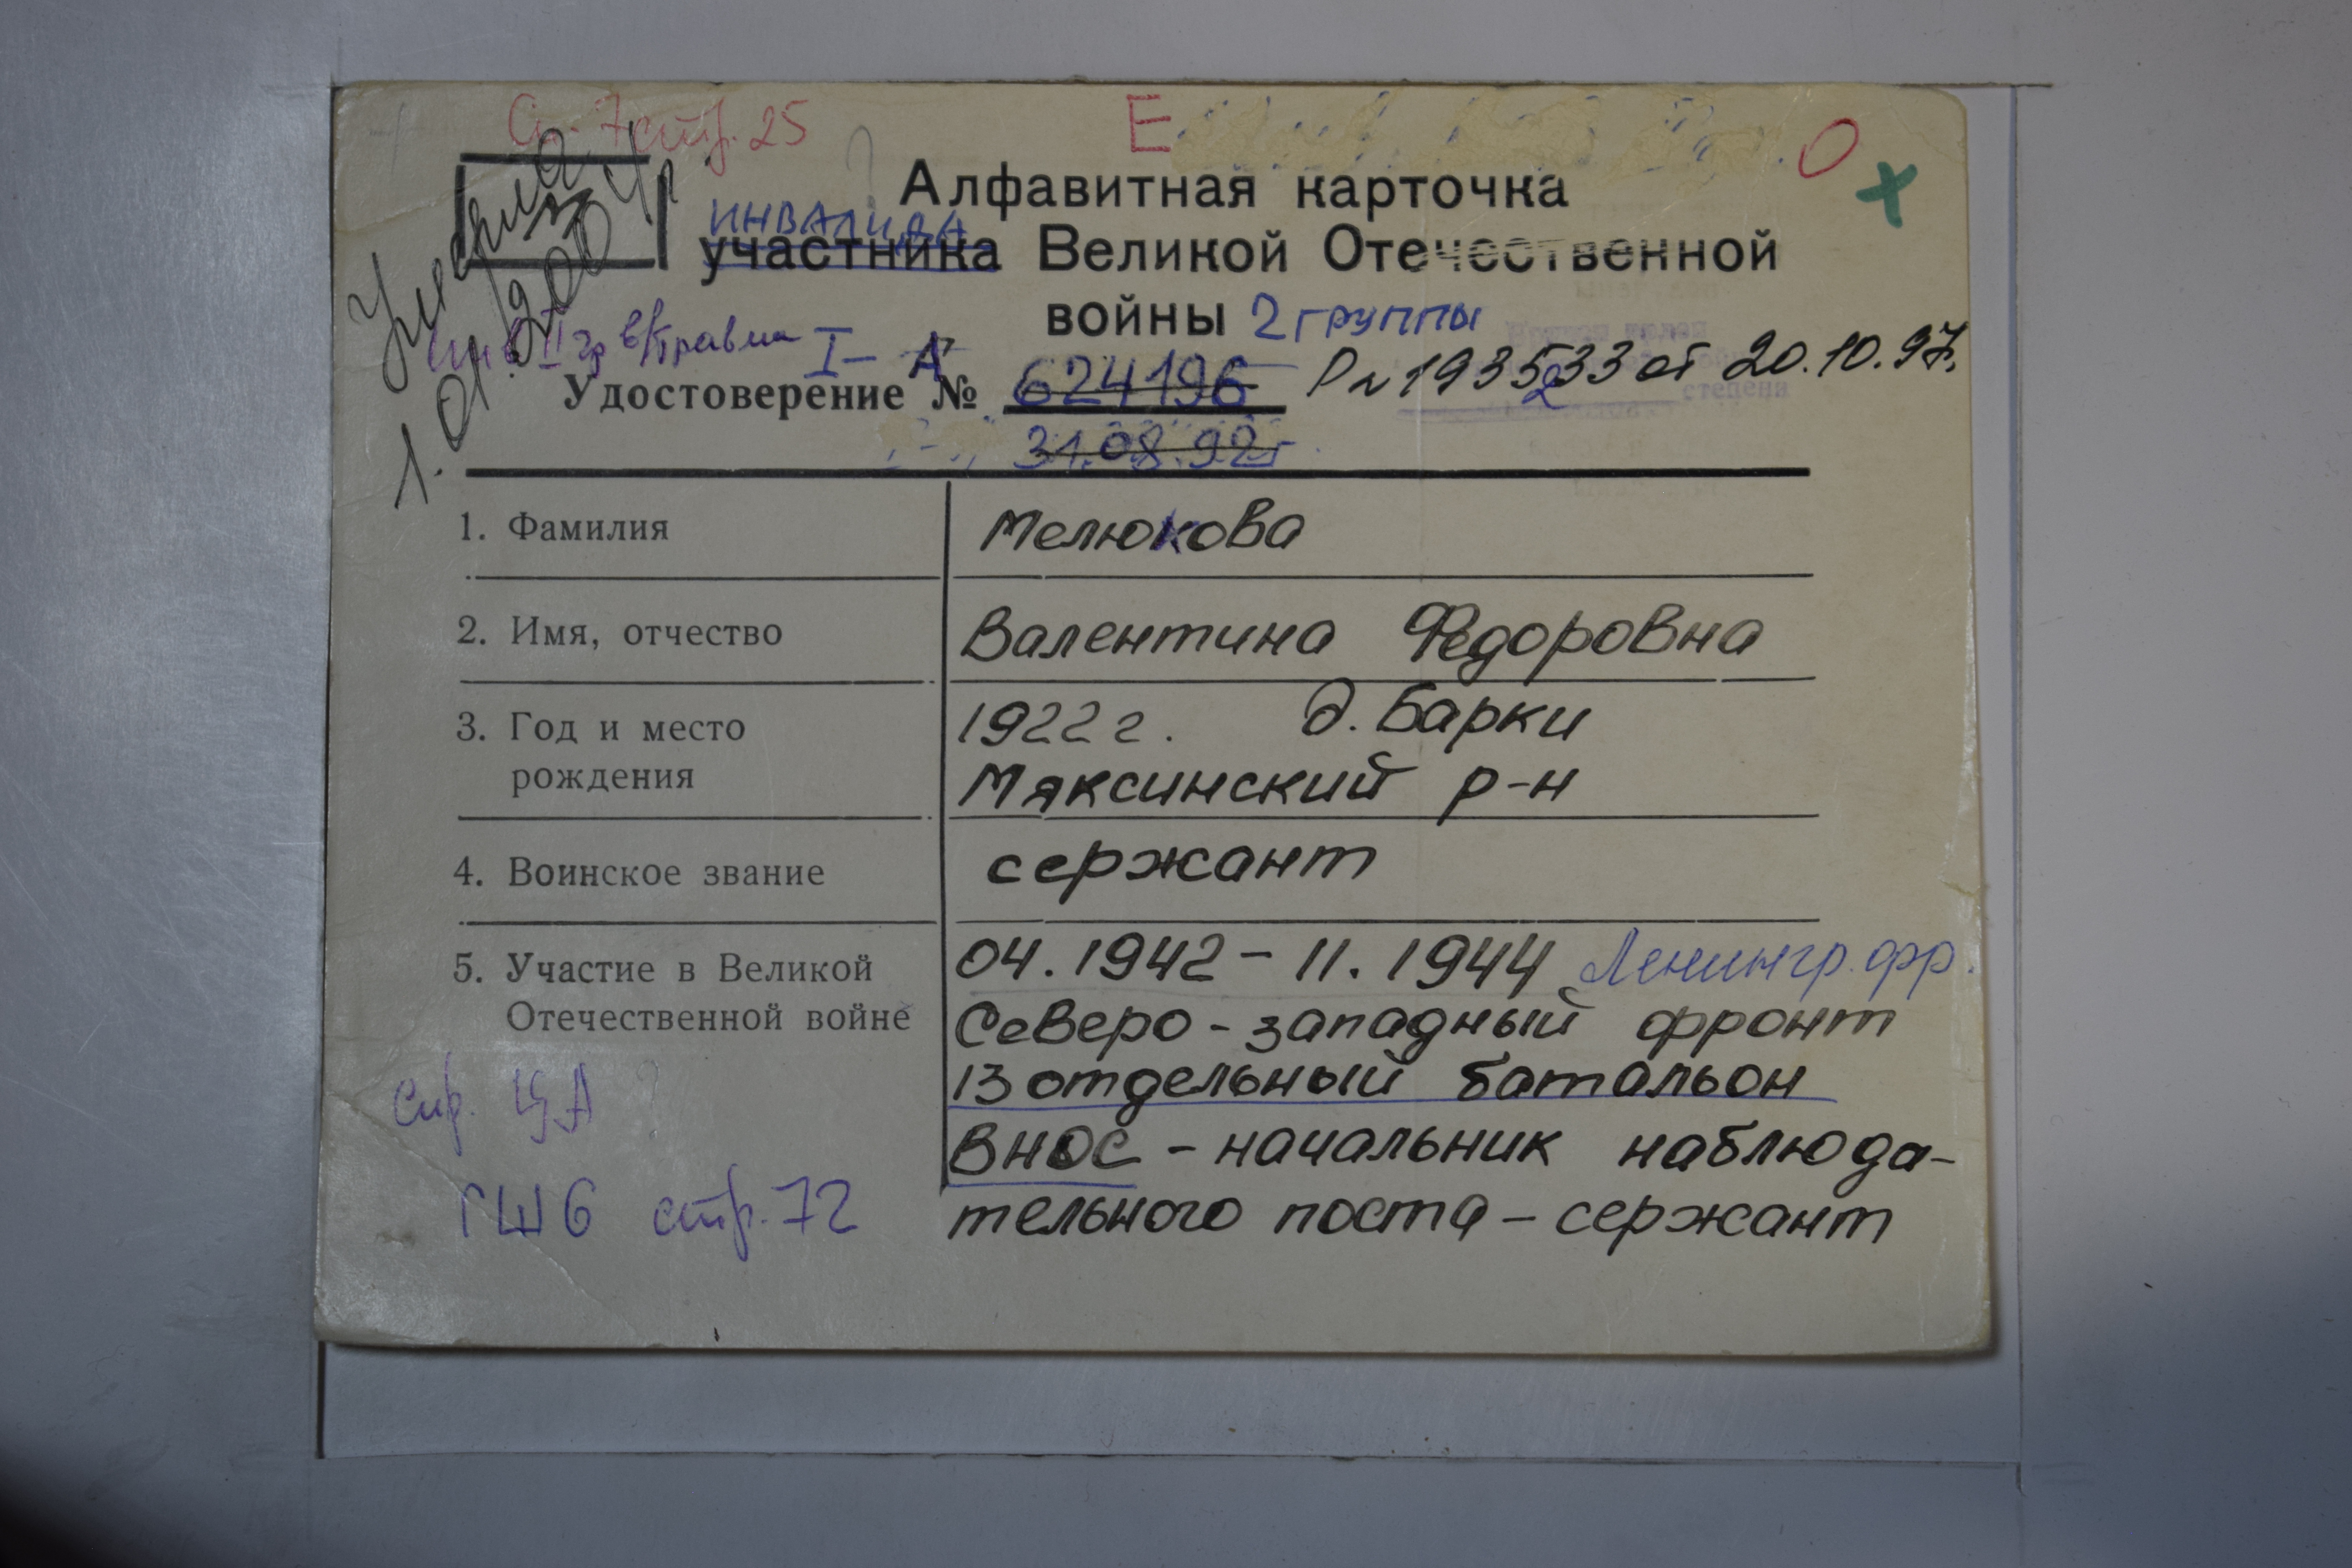 стр. 25
Е
О
х
Алфавитная карточка
ИНВАЛИДА
участника Великой Отечественной
войны 2 группы
Умерла
1.01.2004г
инв II гр в/травма I – А
Удостоверение № 624196 Р № 193533 от 20.10.97г.
2
31.08.92г
степени
1. Фамилия Мелюкова
2. Имя, отчество Валентина Федоровна
3. Год и место 1922 г. д. Барки
рождения Мяксинский р-н
4. Воинское звание сержант
5. Участие в Великой 04.1942 – 11.1944 Ленингр. фр.
Отечественной войне Северо-западный фронт
13 отдельный батальон
спр. ЦА
ВНОС – начальник наблюда-
ГШ6 стр. 72 тельного поста – сержант